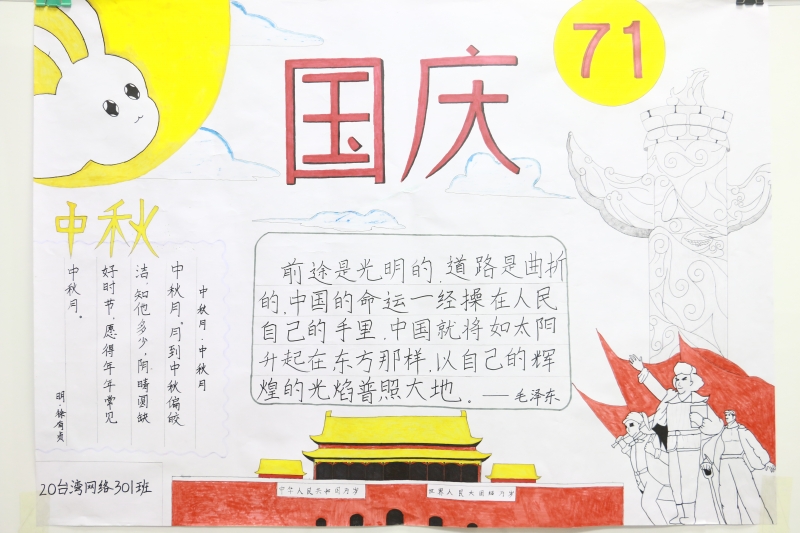 国庆
71
中秋
中秋月·中秋月
中秋月。月到中秋偏皎
洁,知他多少,阴晴圆缺
好时节,愿得年年常见
中秋月。
明·徐有贞
前途是光明的,道路是曲折
的,中国的命运一经操在人民
自己的手里,中国就将如太阳
升起在东方那样,以自己的辉
煌的光焰普照大地。——毛泽东
20台湾网络301班
中华人民共和国万岁
世界人民大团结万岁